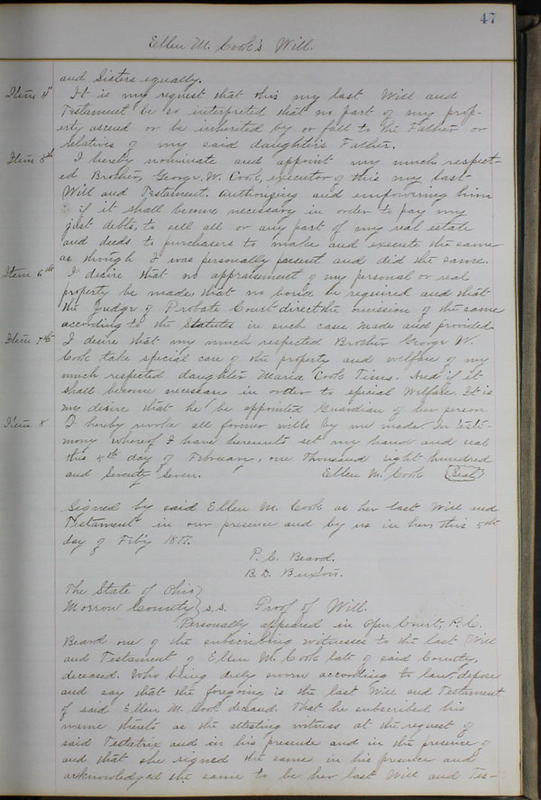 47
Ellen M. Cook's Will.
and Sisters equally.
Item 4th It is my request that this my last Will and
Testament be so interpreted that no part of my prop-
erty ascend or be inherited by or fall to the Father or
relatives of my said daughter's Father.
Item 5th I hereby nominate and appoint my much respect-
ed Brother, George W. Cook, executor of this my last
Will and Testament. Authorizing and empowering him
if it shall become necessary in order to pay my
just debts, to sell all or any part of my real estate
and deeds to purchasers to make and execute the same
as though I was personally present and did the same.
Item 6th I desire that no appraisement of my personal or real
property be made, that no bond be required and that
the Judge of Probate Court direct the omission of the same
according to the Statutes in such case made and provided.
Item 7th I desire that my much respected Brother George W.
Cook take special care of the property and welfare of my
much respected daughter Maria Cook Tims. And if it
shall become necessary in order to special Welfare. It is
my desire that he be appointed Guardian of her person
Item 8 I hereby revoke all former wills by me made. In testi-
mony whereof I have hereunto set my hand and seal
this 5th day of February, one thousand eight hundred
and Seventy Seven. Ellen M. Cook (Seal)
Signed by said Ellen M. Cook as her last Will and
Testament in our presence and by us in hers this 5th
day of Feb'y 1877.
P. C. Beard.
B. D. Buxton.
The State of Ohio
Morrow County } s.s. Proof of Will.
Personally appeared in Open Court, P. C.
Beard one of the subscribing witnesses to the last Will
and Testament of Ellen M. Cook late of said County,
deceased. Who being duly sworn according to law depose
and say that the foregoing is the last Will and Testament
of said Ellen M. Cook deceased. That he subscribed his
name thereto as the attesting witness at the request of
said Testatrix and in his presence and in the presence of
and that she signed the same in his presence and
acknowledged the same to be her last Will and Tes-